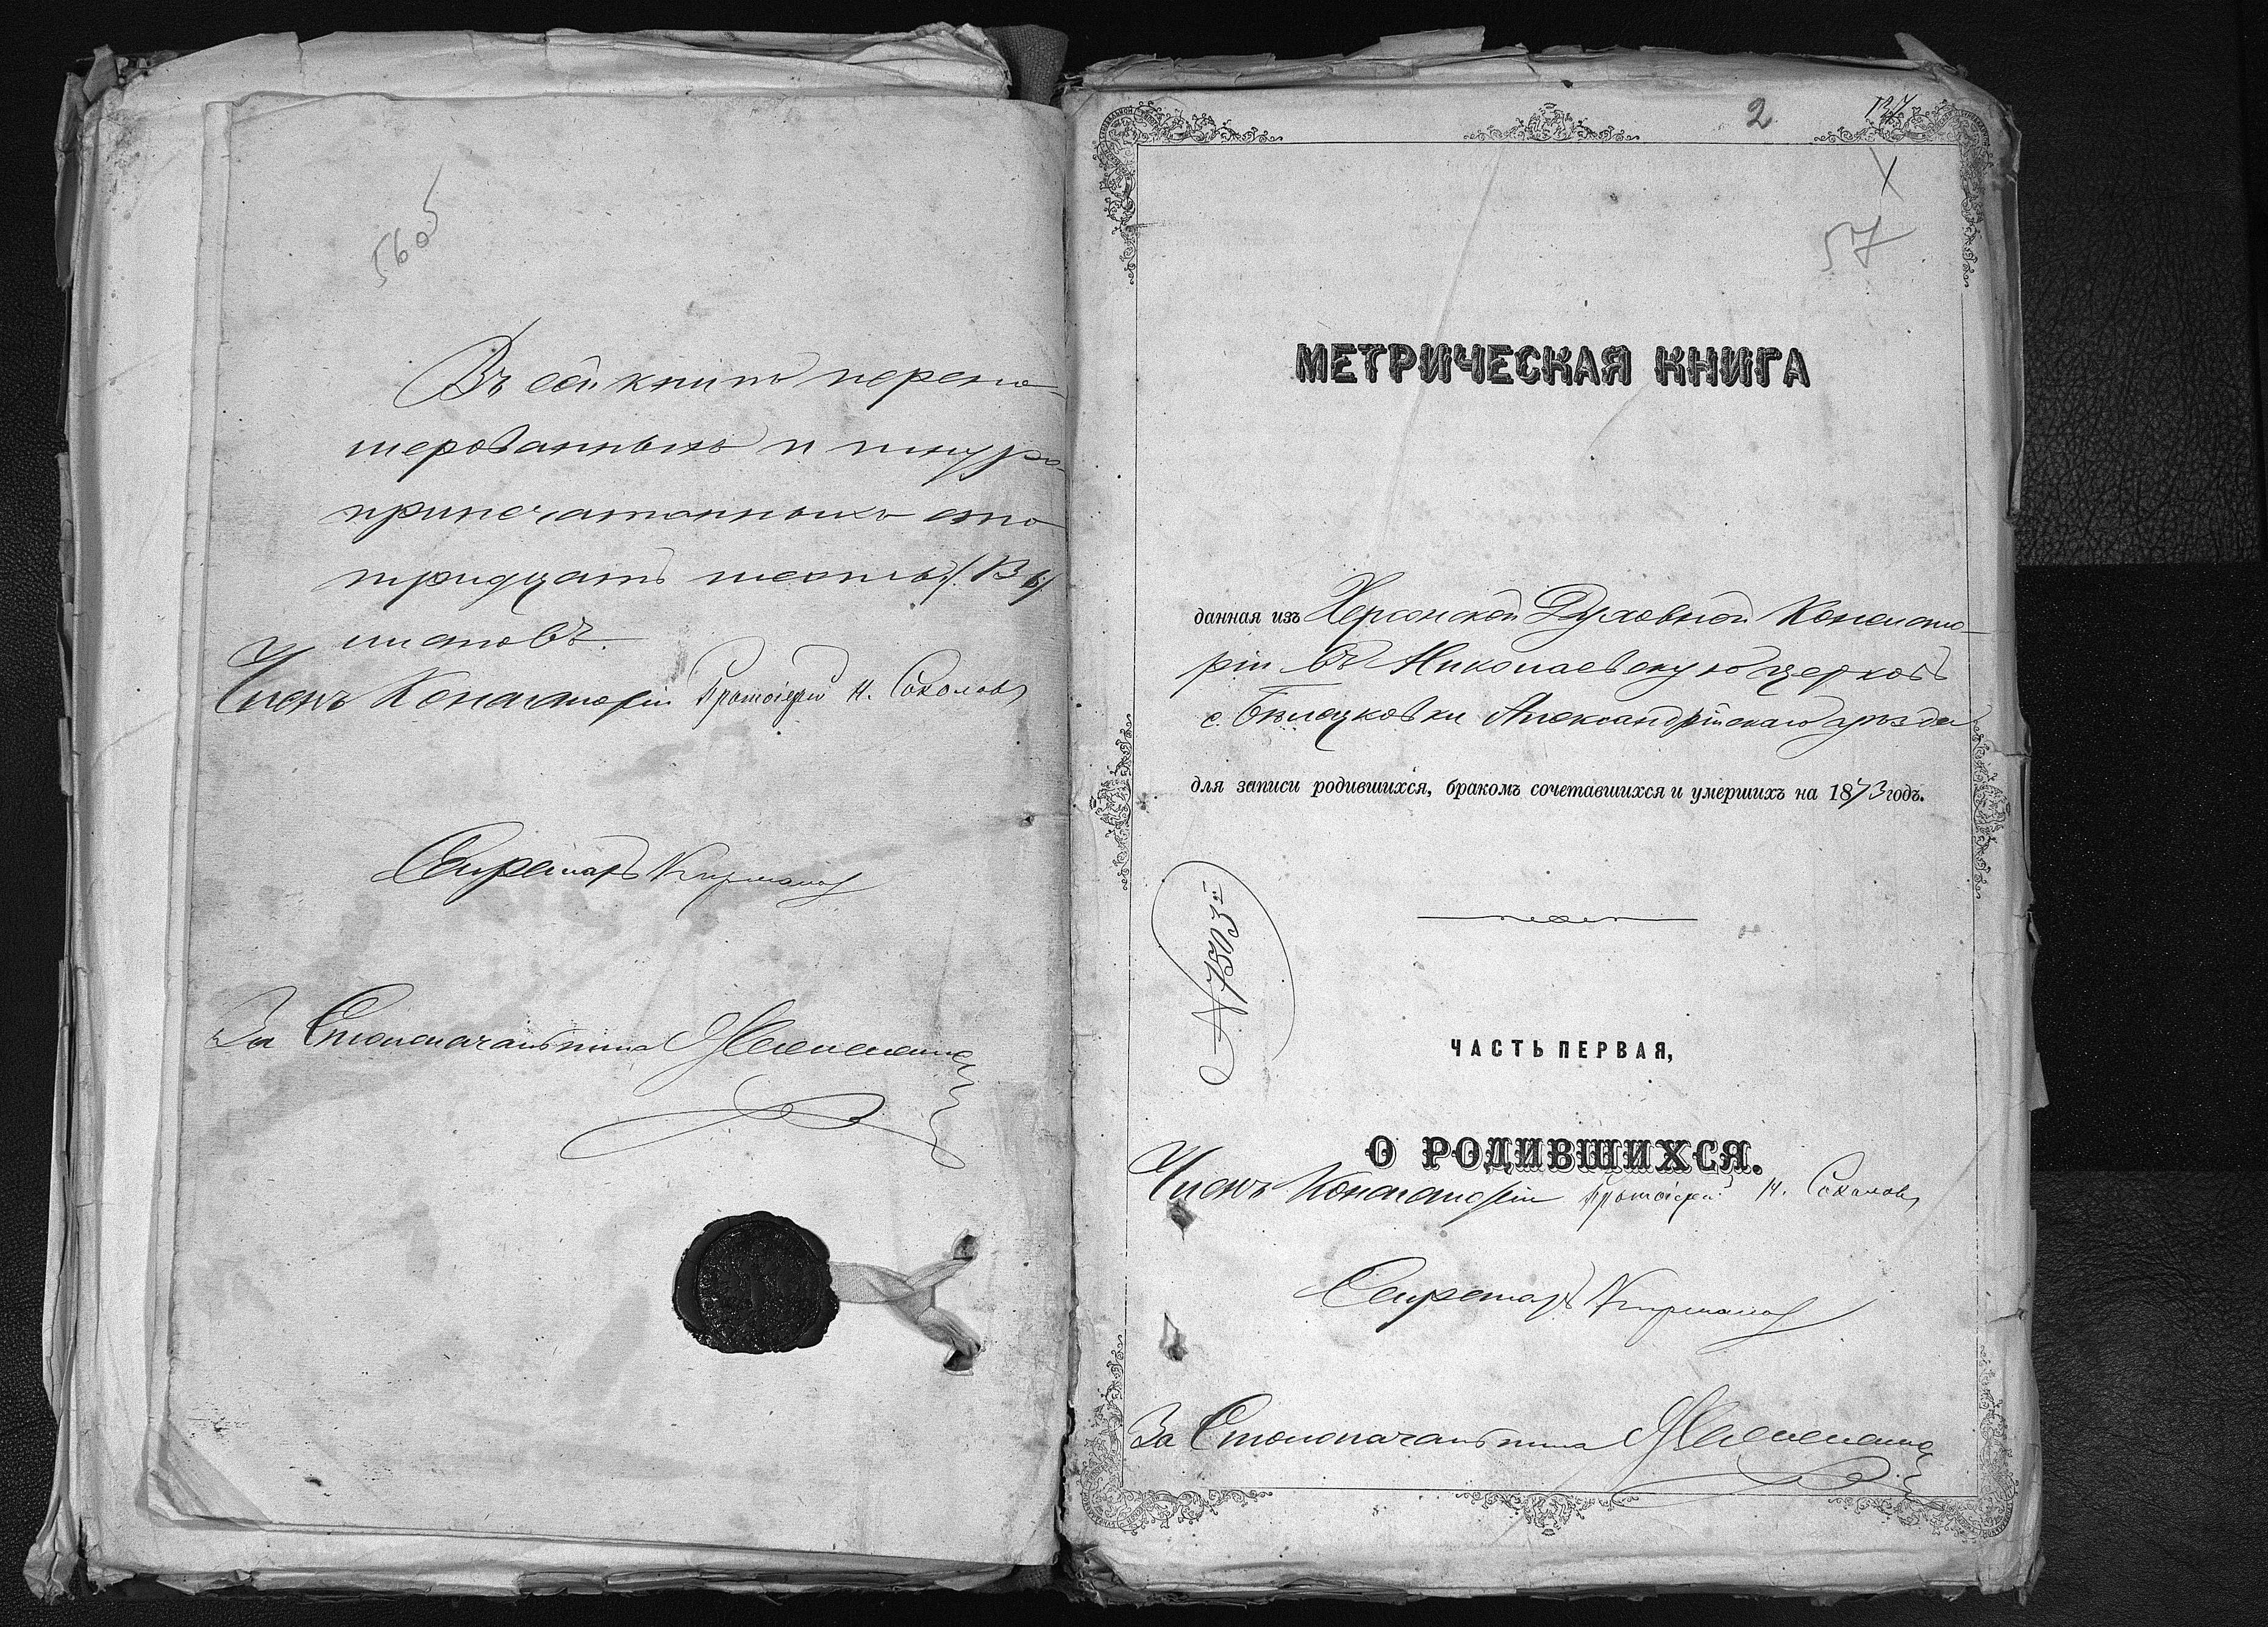 5605
Въ сей книгѣ перену-
мерованныхъ и шнуро-
припечатанныхъ сто
тридцать шесть /136/
листовъ.
Членъ Консисторіи Протоіерей Н. Соколовъ
Секретарь
За Столоначальника
2 137
57
МЕТРИЧЕСКАЯ КНИГА
данная изъ Херсонской Духовной Консисто-
ріи въ Николаевскую церковь
с. Бѣлецковки Александрійскаго уѣзда
для записи родившихся, бракомъ сочетавшихся и умершихъ на 1873 годъ.
№ 7503й
ЧАСТЬ ПЕРВАЯ,
О РОДИВШИХСЯ.
Членъ Консисторіи Протоіерей Н. Соколовъ
Секретарь
За Столоначальника